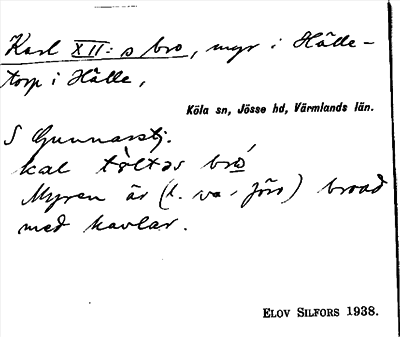 Karl XII:s bro, myr i Hälle-
torp i Hälle,
Köla sn, Jösse hd, Värmlands län.
S Gunnarsbj.
kal tòltəs bró
Myren är (l. va. förs) broad
med kavlar.
ELOV SILFORS 1938.